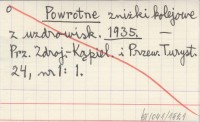 Powrotne zniżki kolejowe
z uzdrowisk. 1935. —
Prz. Zdroj.-Kąpiel. i Przew. Turyst.
24, nr 1: 1.